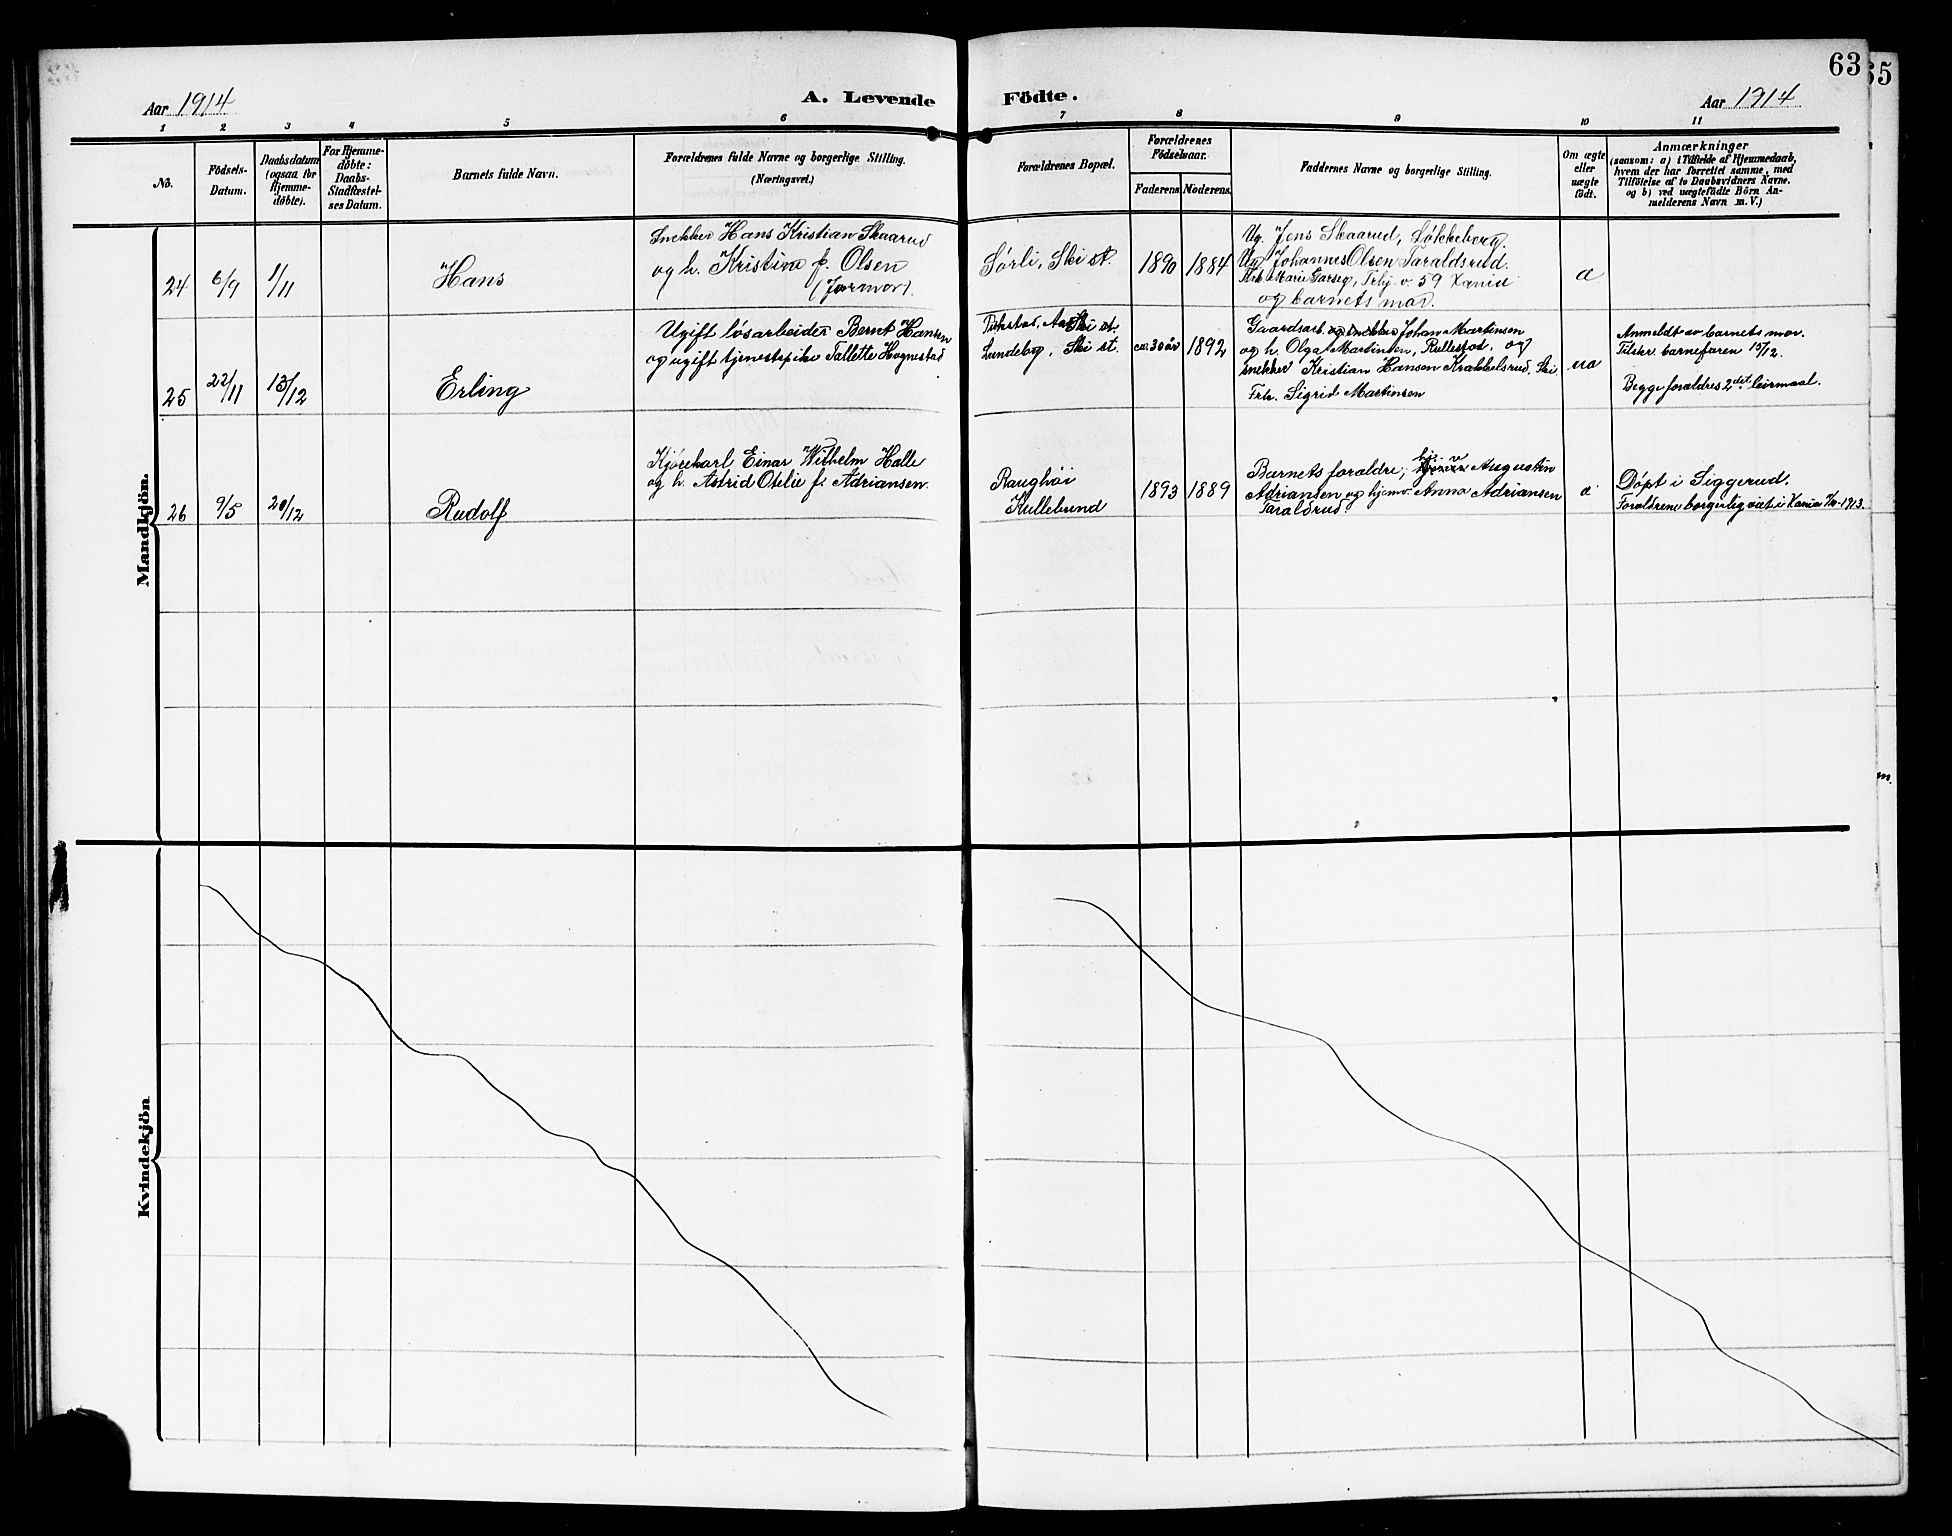 63
65
Aar 1914
A. Levende
Födte.
Aar 1914
1 2 3 4 5 6 7 8 9 10 11
No.
Födsels-
Datum.
Daabsdatum
(ogsaa for
Hjemme-
döbte).
For Hjemme-
döbte:
Daabs-
Stadfæstel-
ses Datum.
Barnets fulde Navn.
Forældrenes fulde Navne og borgerlige Stilling.
(Næringsvei.)
Forældrenes Bopæl.
Forældrenes
Födselsaar.
Faderens
Moderens.
Faddernes Navne og borgerlige Stilling.
Om ægte
eller
uægte
födt.
Anmærkninger
(saasom: a) i Tilfælde af Hjemmedaab,
hvem der har forrettet samme, med
Tilföielse af to Daabsvidners Navne,
og b) ved uægtefödte Börn An-
melderens Navn m. V.)
Mandkjön.
24
6/9
1/11
Hans
Snekker Hans Kristian Skaarud
og h. Kristina f. Olsen
(Jormor).
Sørli, Ski st.
1890
1884
Ug. Jens Skaarud, Løkkeberg.
Ug. Johannes Olsen Taraldsrud.
Marie Garseg, Trhj. v. 59 Xania
og barnets mor.
a
25
22/11
13/12
Erling
Ugift løsarbeider Bernt Hansen
og ugift tjenestepike Tallette Hognestad
Ski st.
Lundeby, Ski st.
ca. 30 år
1892
Gaardsarb. og snekker Johan Martinsen
og h. Olga Martinsen, Rullestad, og
snekker Kristian Hansen Krakkelsrud, Ski
Frk. Sigrid Martinsen
ua
Anmeldt av barnets mor.
Tilskr. barnefaren 15/12.
Begge foraldres 2det leirmaal.
26
9/5
20/12
Rudolf
Kjørekarl Einar Wilhelm Halle
og h. Astrid Otelie f. Adriansen.
Raughøi
Kullebund
1893
1889
Barnets foraldre, Augustin
Adriansen og hjemv. Anna Adriansen
Taraldrud.
a
Døpt i Siggerud.
Foraldrene borgerlig viet i Xania 1913.
Kvindekjön